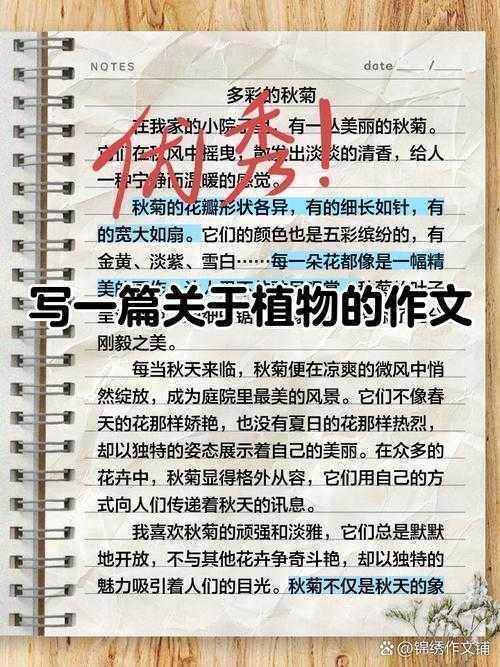 NOTES
date / 
多彩的秋菊
在我家的小院 有一 丛美丽的秋菊。
它们在 风中摇曳，散发出淡淡的清香，给人
一种宁静而温暖的感觉。
优秀！
秋菊的花瓣形状各异，有的细长如针，有
的宽大如扇。它们的颜色也是五彩缤纷的，有
金黄、淡紫、雪白……每一朵花都像是一幅精
美的
写一篇关于植物的作文
刚毅之美。
每当秋天来临，秋菊便在凉爽的微风中悄
然绽放，成为庭院里最美的风景。它们不像春
天的花那样娇艳，也没有夏日的花那样热烈，
却以独特的姿态展示着自己的美丽。在众多的
花卉中，秋菊显得格外从容，它们用自己的方
式向人们传递着秋天的讯息。
我喜欢秋菊的顽强和淡雅，它们总是默默
地开放，不与其他花卉争奇斗艳，却以独特的
魅力吸引着人们的目光。秋菊不仅是秋天的象
锦绣作文铺